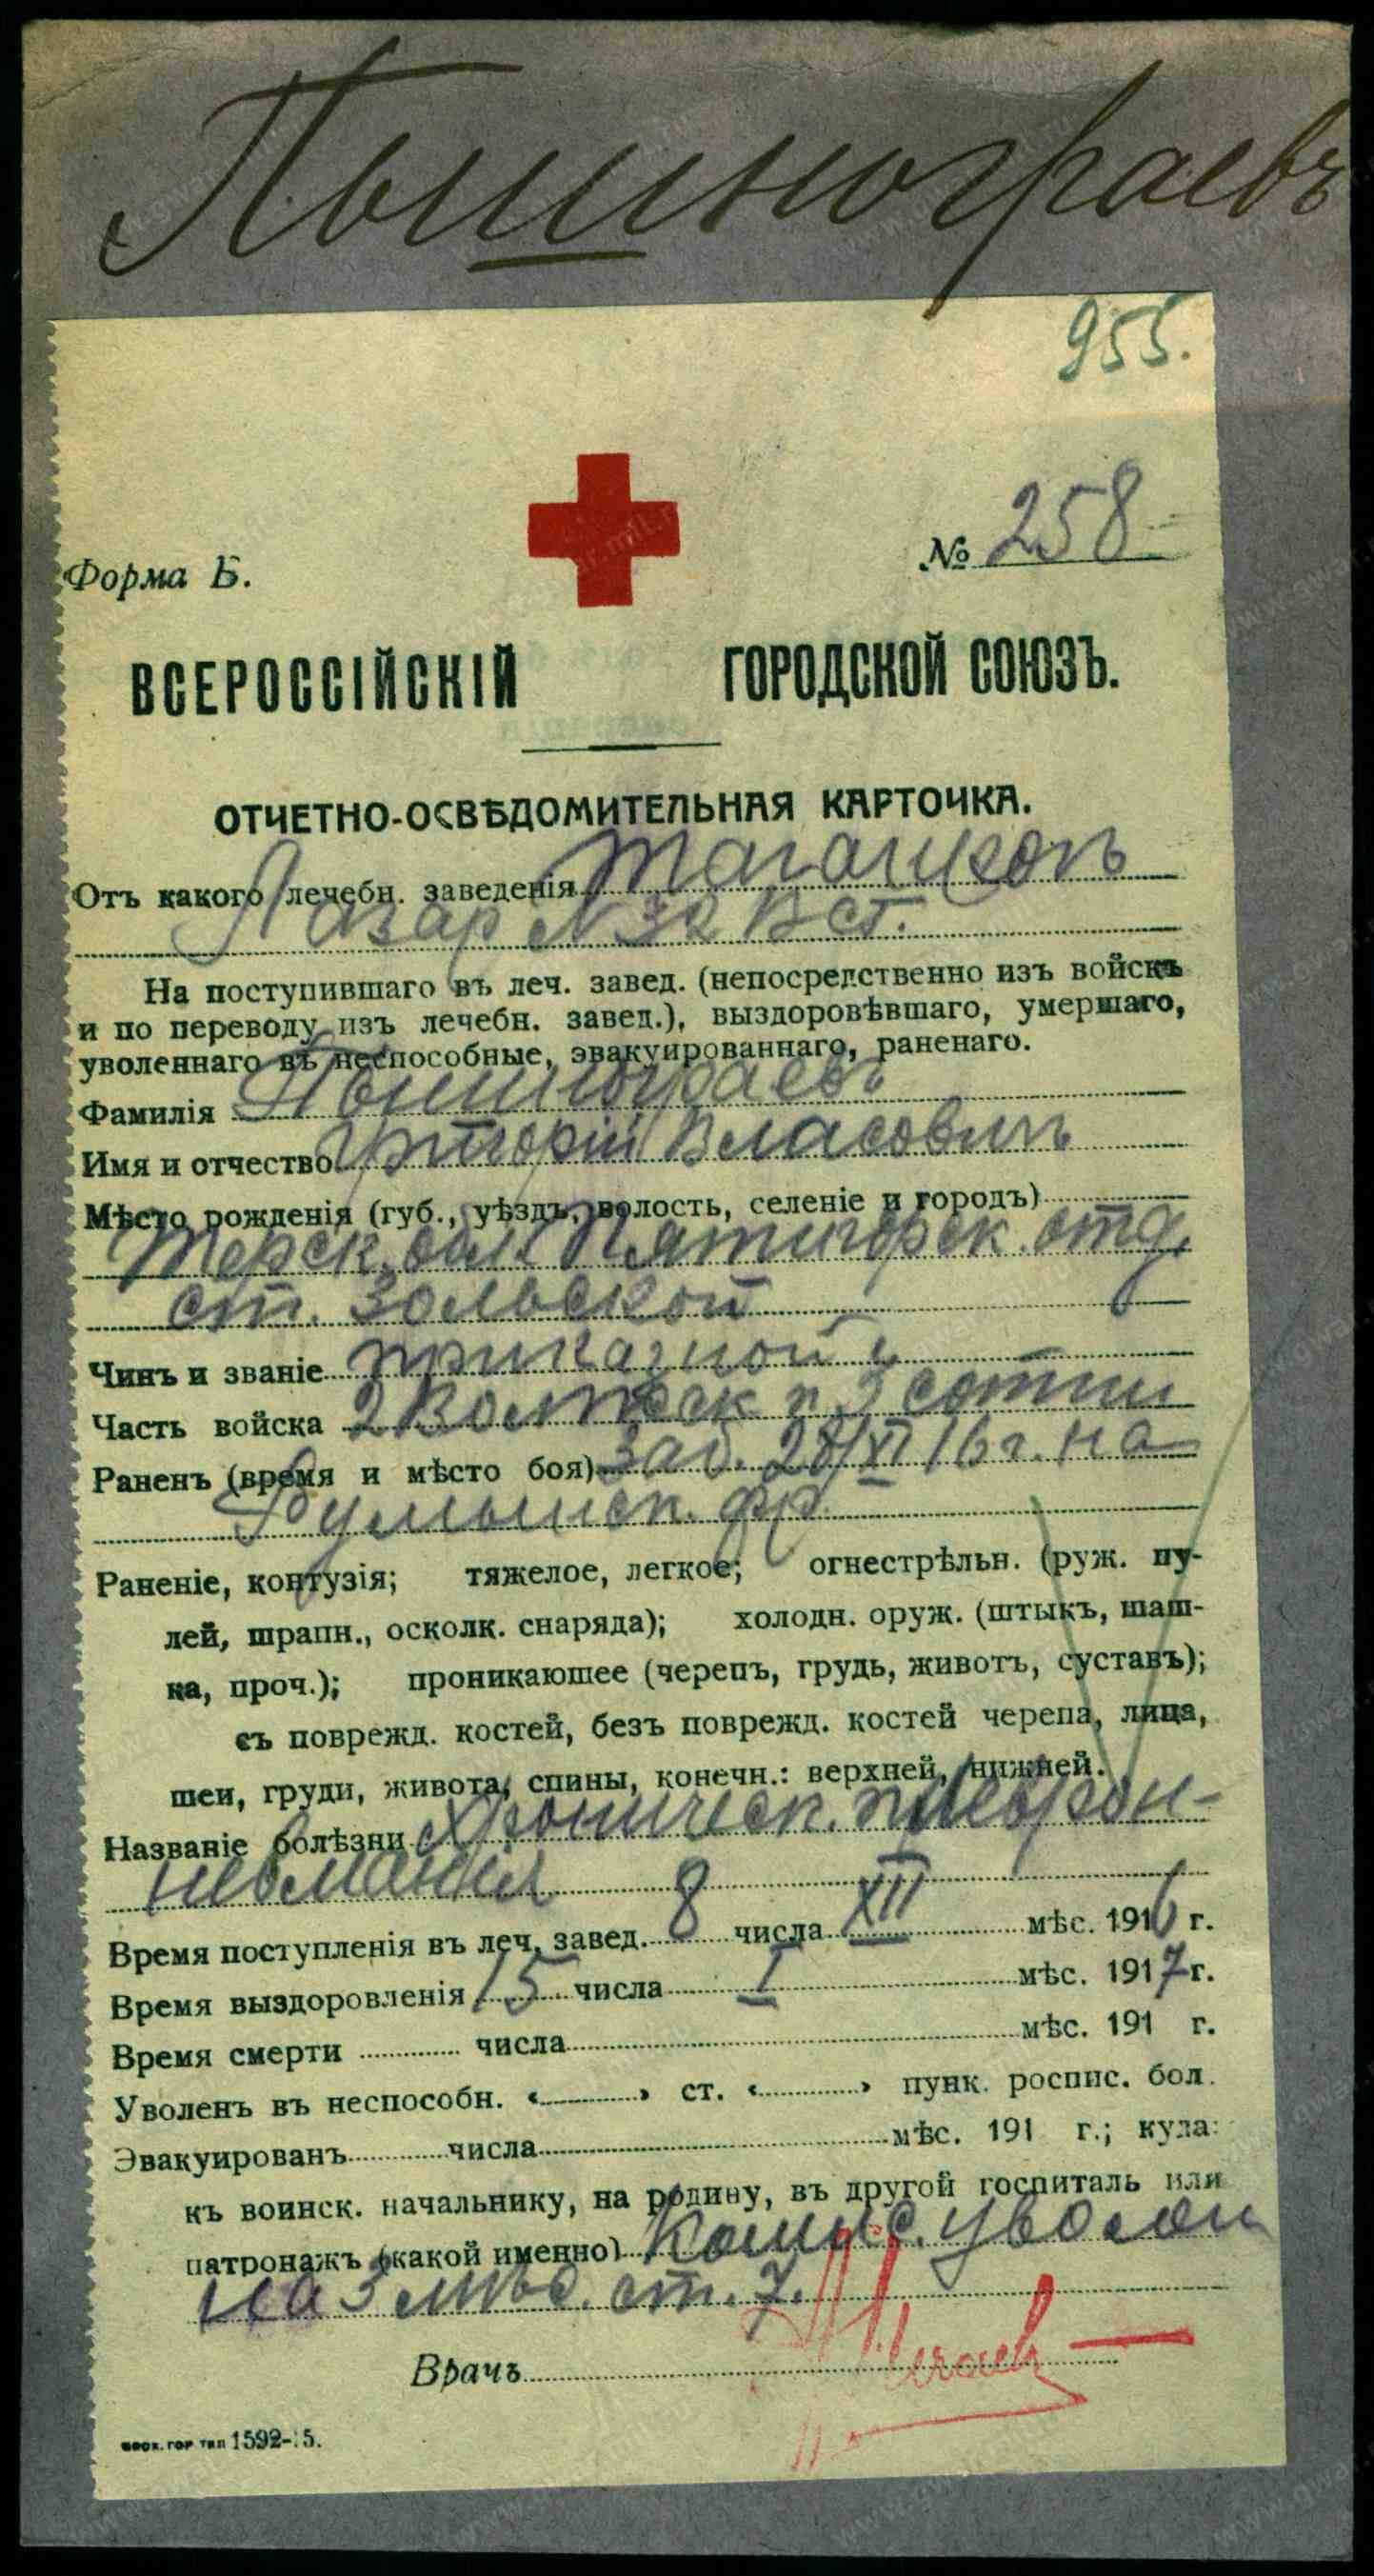 Пышнограевъ
955.
Форма Б.
№ 258
ВСЕРОССІЙСКІЙ ГОРОДСКОЙ СОЮЗЪ.
ОТЧЕТНО-ОСВѢДОМИТЕЛЬНАЯ КАРТОЧКА.
Отъ какого лечебн. заведенія
Лазар № 32 В ст.
На поступившаго въ леч. завед. (непосредственно изъ войскъ
и по переводу изъ лечебн. завед.), выздоровѣвшаго, умершаго,
уволеннаго въ неспособные, эвакуированнаго, раненаго.
Фамилія Пышнограевъ
Имя и отчество Григорій Власовичъ
Мѣсто рожденія (губ., уѣздъ, волость, селеніе и городъ)
Терск. обл. Пятигорск. отд.
ст. Зольской
Чинъ и званіе приказной
Часть войска 2 Волжск п 3 сотни
Раненъ (время и мѣсто боя) заб. 28/XI 16 г. на
Румынск. фр.
Раненіе, контузія; тяжелое, легкое; огнестрѣльн. (руж. пу-
лей, шрапн., осколк. снаряда); холодн. оруж. (штыкъ, шаш-
ка, проч.); проникающее (черепъ, грудь, животъ, суставъ);
съ поврежд. костей, безъ поврежд. костей черепа, лица,
шеи, груди, живота, спины, конечн.: верхней, нижней.
Названіе болѣзни хроническ. плеврон-
невмонія
Время поступленія въ леч. завед. 8 числа XII мѣс. 1916 г.
Время выздоровленія 15 числа I мѣс. 1917 г.
Время смерти числа мѣс. 191 г.
Уволенъ въ неспособн. « » ст. « » пунк. роспис. бол.
Эвакуированъ числа мѣс. 191 г.; куда:
къ воинск. начальнику, на родину, въ другой госпиталь или
патронажъ (какой именно) Комис. уволен
на 3 мѣс. ст. 7.
Врачъ
Моск. гор тип 1592-15.